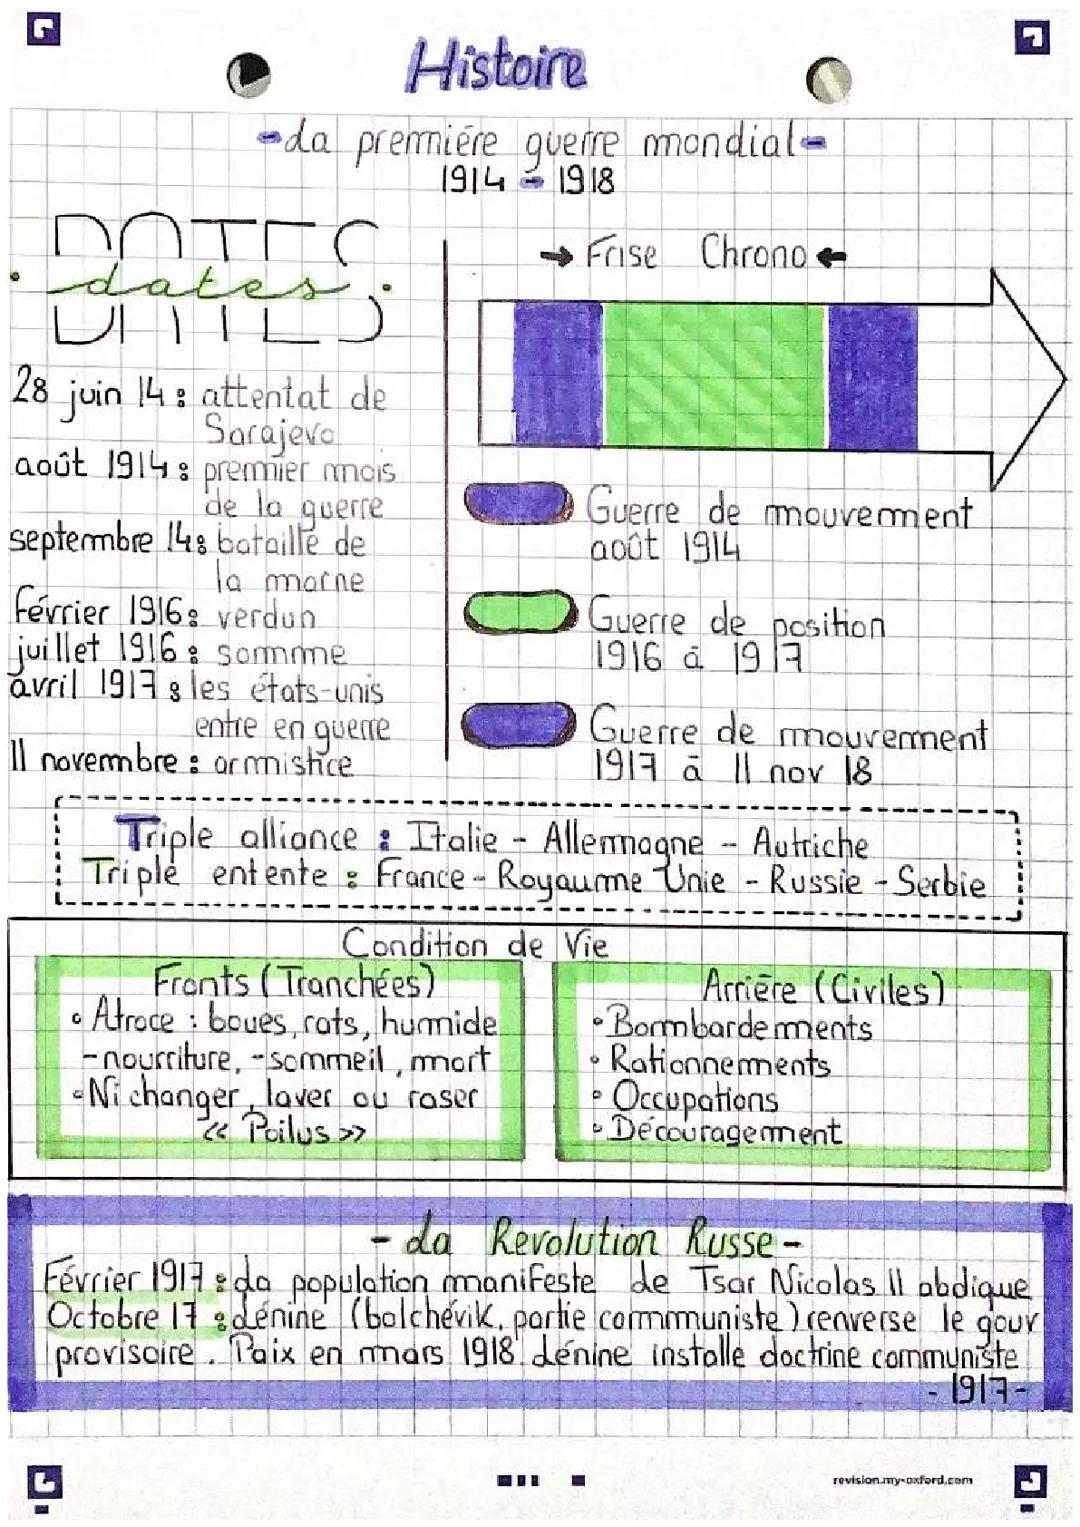 Histoire
- La premmiére guerre mondial -
1914 - 1918
DATES
. dates .
28 juin 14 : attentat de
Sarajevo
août 1914 : premmier mois
de la guerre
septembre 14 : bataille de
la marne
février 1916 : verdun
juillet 1916 : somme
avril 1917 : les états-unis
entre en guerre
11 novembre : armistice
→ Frise Chrono ←
Guerre de mouvement
août 1914
Guerre de position
1916 à 1917
Guerre de mouvement
1917 à 11 nov 18
Triple alliance : Italie - Allemagne - Autriche
Triple entente : France - Royaume Unie - Russie - Serbie
Condition de Vie
Fronts (Tranchées)
• Atroce : boues, rats, humide
- nourriture, - sommeil, mort
• Ni changer, laver ou raser
<< Poilus >>
Arrière (Civiles)
• Bombardements
• Rationnements
• Occupations
• Découragement
- La Revolution Russe -
Février 1917 : La population manifeste de Tsar Nicolas II abdique
Octobre 17 : Lénine (bolchévik, partie communiste) renverse le gouv
provisoire. Paix en mars 1918 Lénine installe doctrine communiste
- 1917 -
revision.my-oxford.com